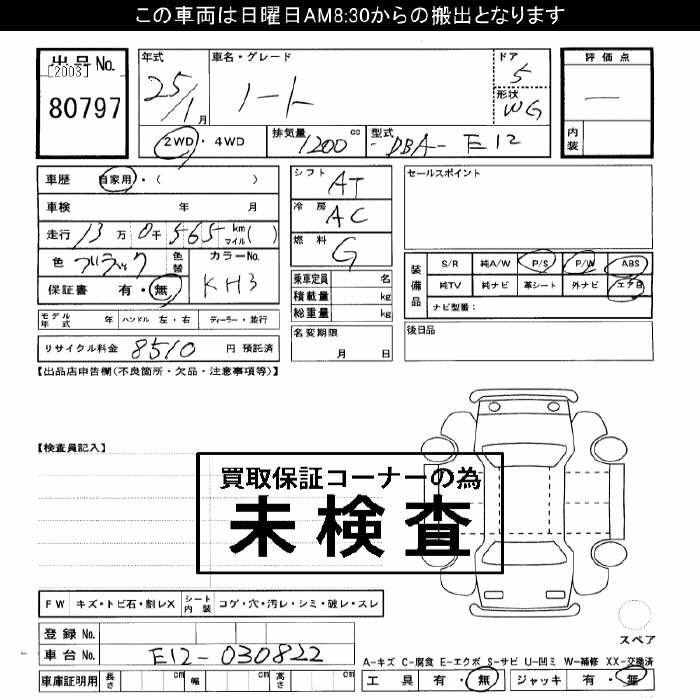 この車両は日曜日AM8:30からの搬出となります
出品No.
[2003]
80797
年式 25/1月
車名・グレード ノート
ドア 5
形状 WG
評価点 —
内装
2WD・4WD
排気量 1200 cc
型式 -DBA-E12
車歴 自家用・( )
車検 年 月
走行 13万0千565km マイル( )
色 ブラック 色替
カラーNo. KH3
保証書 有・無
シフト AT
冷房 AC
燃料 G
乗車定員 名
積載量 kg
総重量 kg
名変期限
月 日
セールスポイント
装備品
S/R 純A/W P/S P/W ABS
純TV 純ナビ 革シート 外ナビ エアB
ナビ型番:
後日品
モデル年式 年 ハンドル 左・右 ディーラー・並行
リサイクル料金 8510 円 預託済
【出品店申告欄(不良箇所・欠品・注意事項等)】
【検査員記入】
買取保証コーナーの為
未検査
FW キズ・トビ石・割レX シート内装 コゲ・穴・汚レ・シミ・破レ・スレ
登録No.
車台No. E12-030822
車庫証明用 長さ cm 幅 cm 高さ cm
スペア
A-キズ C-腐食 E-エクボ S-サビ U-凹ミ W-補修 XX-交換済
工具 有・無 ジャッキ 有・無